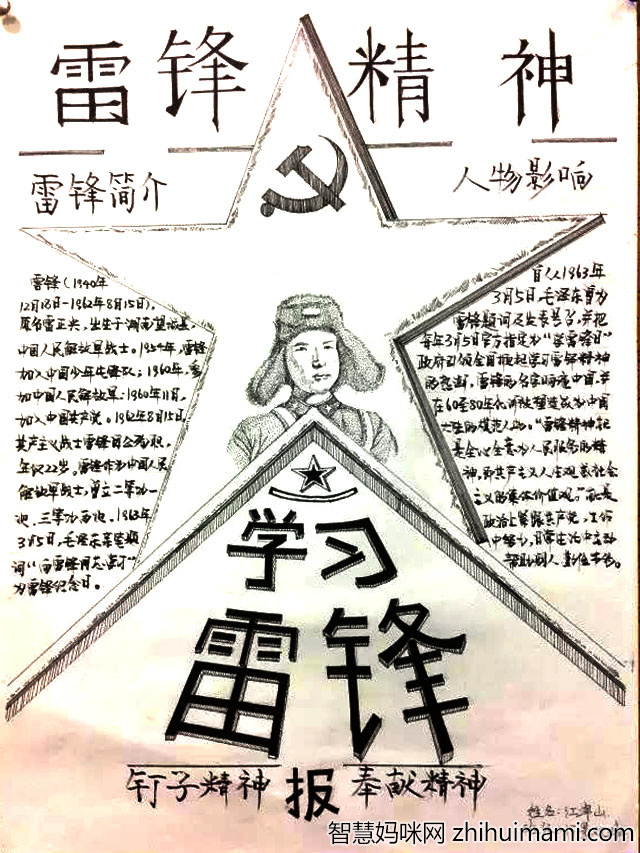 雷锋精神
雷锋简介
人物影响
雷锋(1940年
12月18日-1962年8月15日),
原名雷正兴,出生于湖南望城县,
中国人民解放军战士。1954年,雷锋
加入中国少年先锋队;1960年,参
加中国人民解放军;1960年11月,
加入中国共产党。1962年8月15日
共产主义战士雷锋因公殉职,
年仅22岁。雷锋作为中国人民
解放军战士,曾立二等功一
次,三等功两次。1963年
3月5日,毛泽东亲笔题
词"向雷锋同志学习"
为雷锋纪念日。
自从1963年
3月5日,毛泽东曾为
雷锋题词及发表号召,并把
每年3月5日官方指定为"学雷锋日"
政府引领全国掀起学习雷锋精神
的热潮,雷锋的名字响遍中国,并
在60至80年代
为中国
"雷锋精神"
是全心全意为人民服务的精
神,即共产主义人生观和社会
主义的集体价值观。
政治上紧跟共产党,
中努力,日常生活中主动
帮助别人
学习
雷锋
钉子精神 报 奉献精神
姓名:江
智慧妈咪网 zhihuimami.com